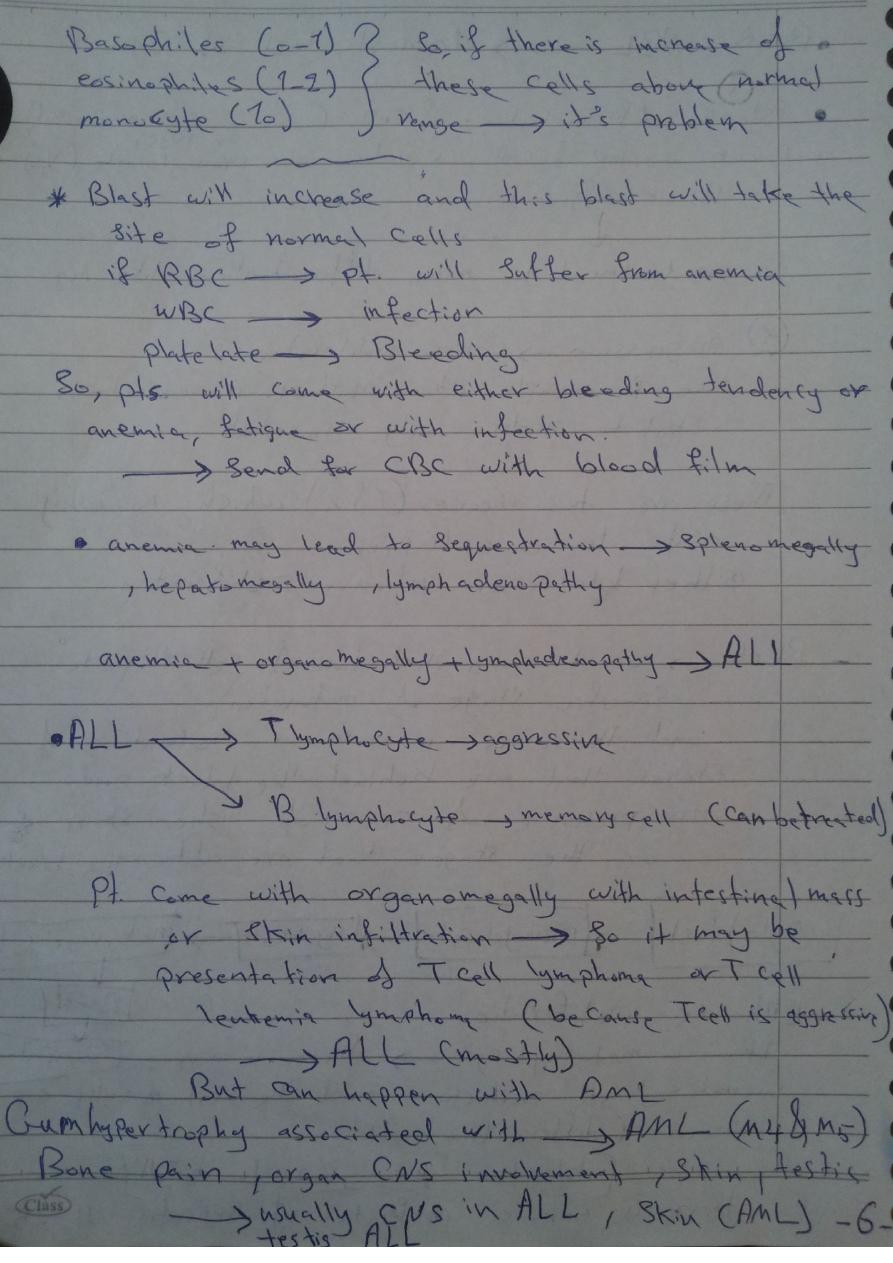 Basophiles (0-1) } So, if there is increase of
eosinophiles (1-2) } these cells above normal
monocyte (10) } range → it's problem
* Blast will increase and this blast will take the
site of normal cells
if RBC → pt. will suffer from anemia
WBC → infection
platelate → Bleeding
So, pts. will come with either bleeding tendency or
anemia, fatigue or with infection.
→ Send for CBC with blood film
• anemia may lead to sequestration → splenomegally
, hepatomegally , lymphadenopathy
anemia + organomegally + lymphadenopathy → ALL
• ALL → T lymphocyte → aggressive
B lymphocyte → memory cell (can be treated)
Pt. come with organomegally with intestinal mass
or skin infiltration → So it may be
presentation of T cell lymphoma or T cell
leukemia lymphoma (because T cell is aggressive)
→ ALL (mostly)
But can happen with AML
Gum hypertrophy associated with → AML (M4 & M5)
Bone pain, organ CNS involvement, skin, testis
→ usually CNS in ALL, skin (AML) -6-
testis ALL
Class